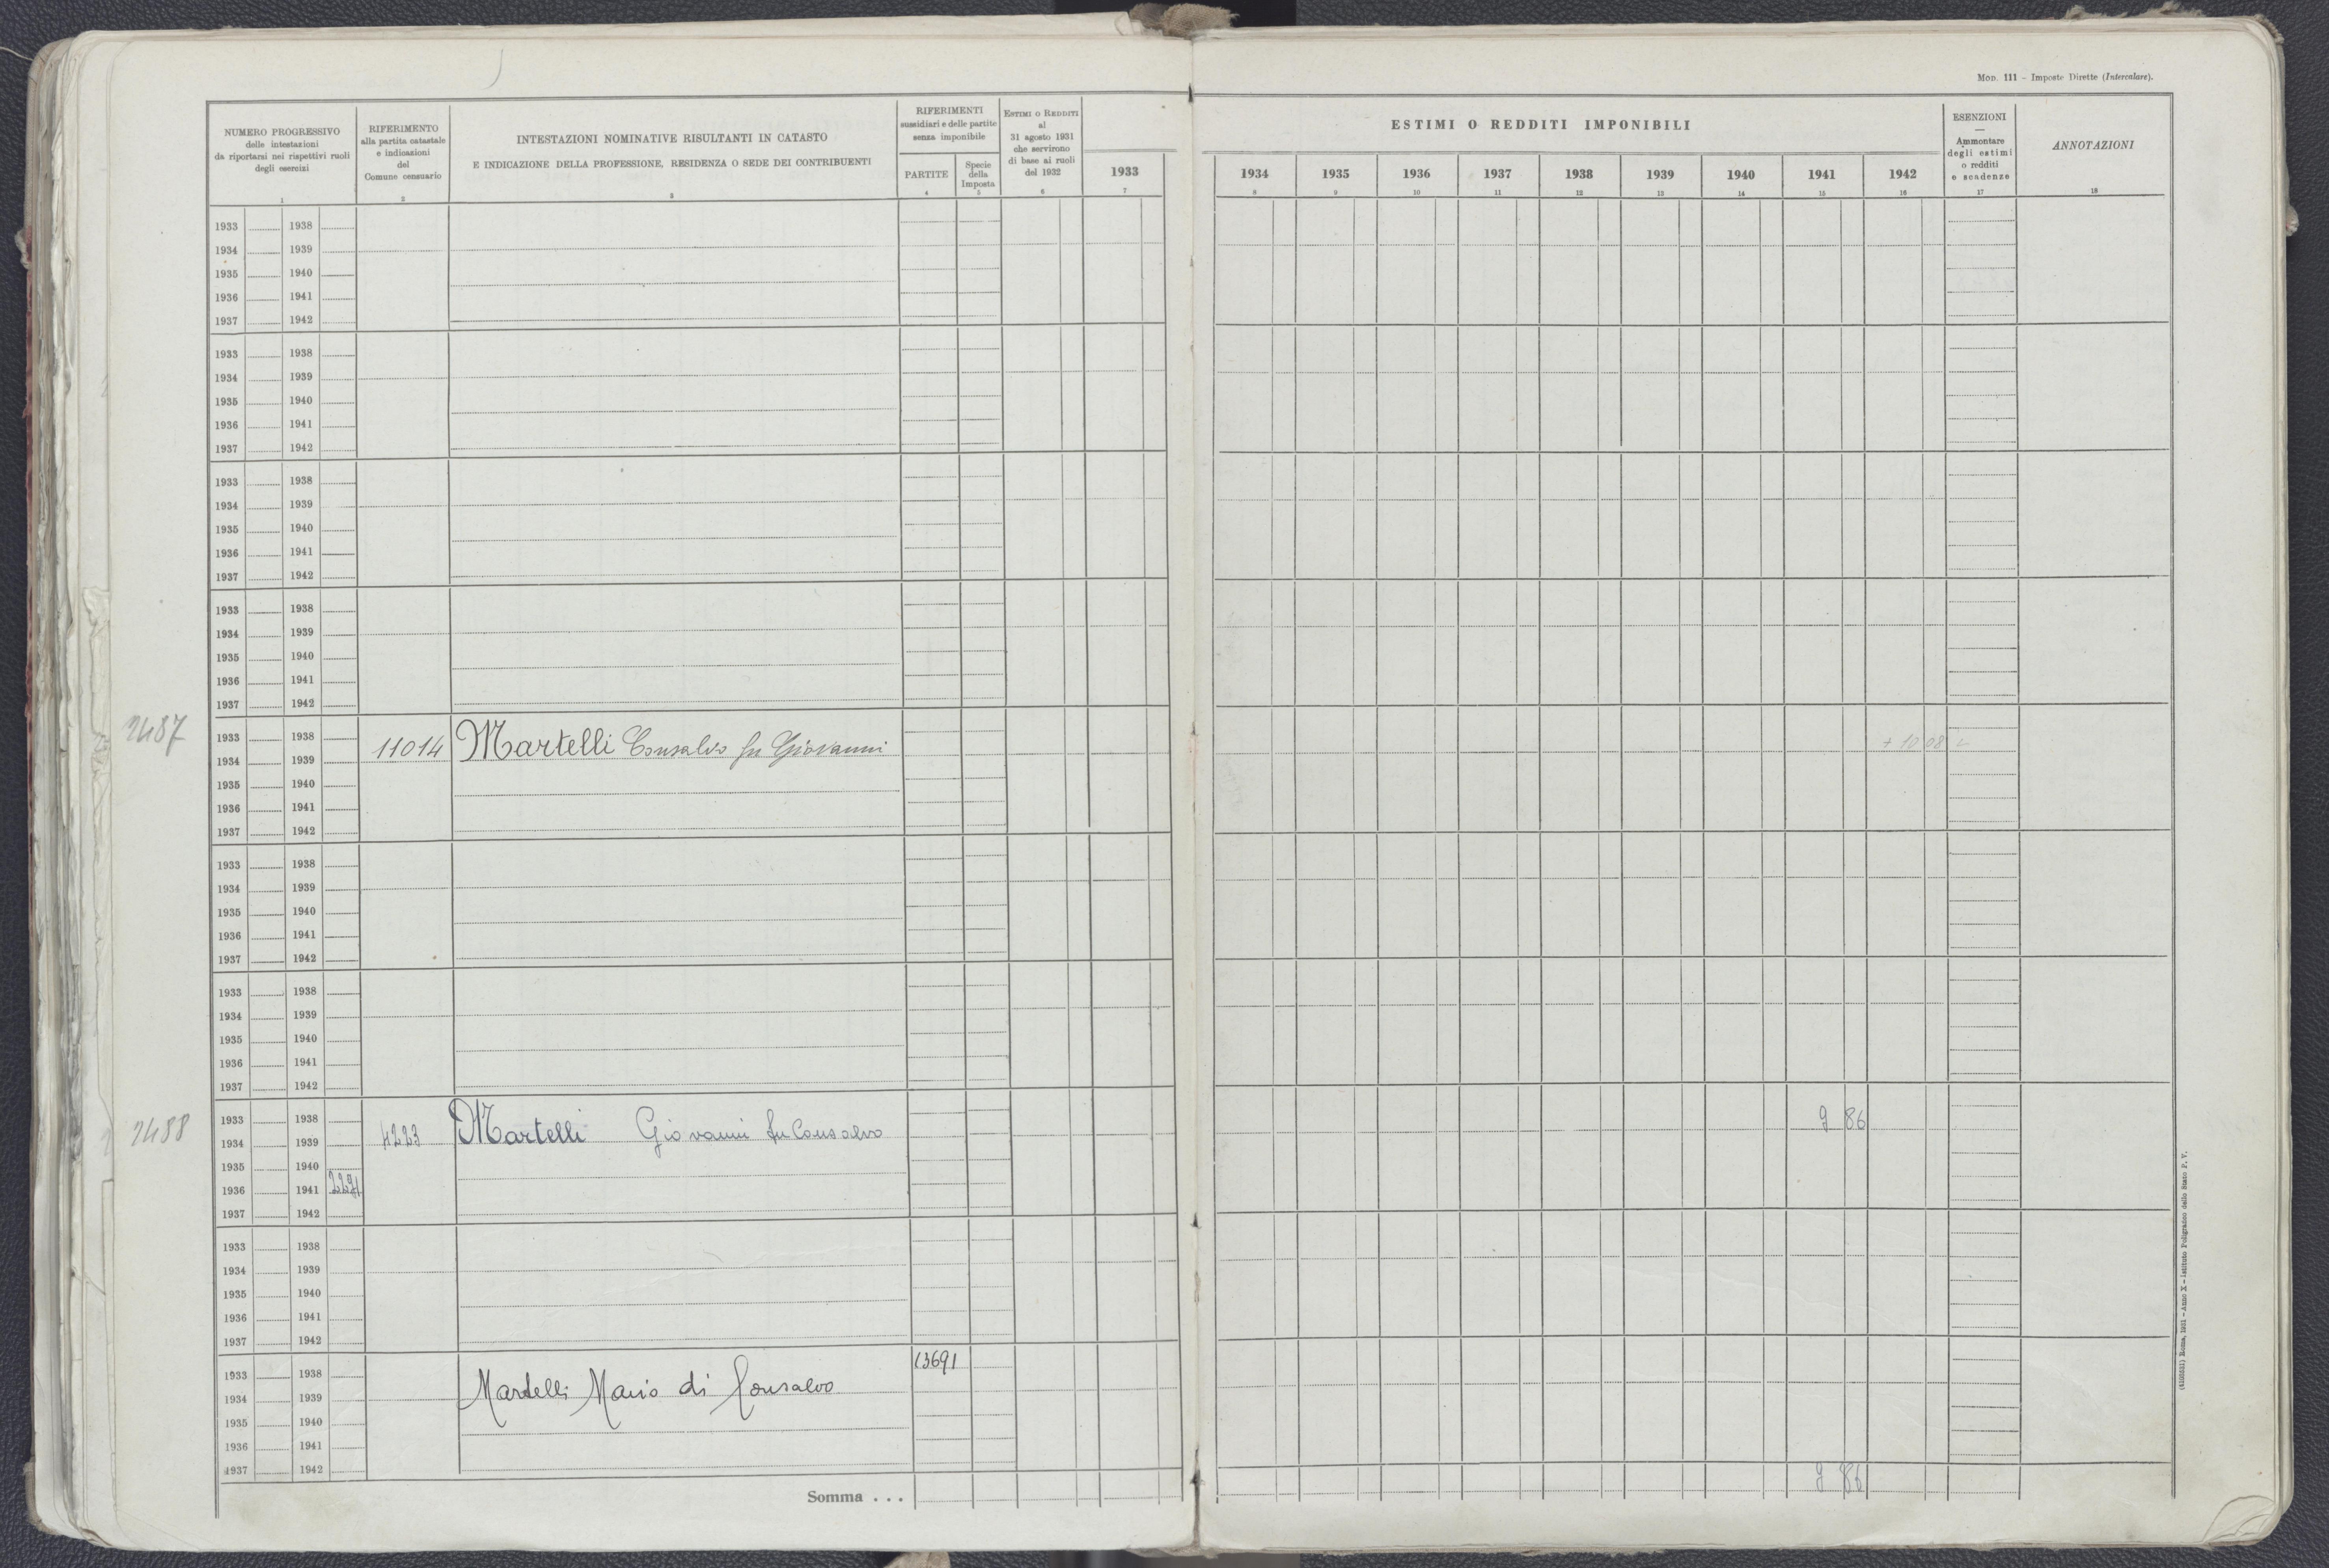 Mod. 111 - Imposte Dirette (Intercalare).
NUMERO PROGRESSIVO
delle intestazioni
da riportarsi nei rispettivi ruoli
degli esercizi
1
RIFERIMENTO
alla partita catastale
e indicazioni
del
Comune censuario
2
INTESTAZIONI NOMINATIVE RISULTANTI IN CATASTO
E INDICAZIONE DELLA PROFESSIONE, RESIDENZA O SEDE DEI CONTRIBUENTI
3
RIFERIMENTI
sussidiari e delle partite
senza imponibile
PARTITE
4
Specie
della
Imposta
5
ESTIMI O REDDITI
al
31 agosto 1931
che servirono
di base ai ruoli
del 1932
6
1933
7
ESTIMI O REDDITI IMPONIBILI
1934 1935 1936 1937 1938 1939 1940 1941 1942
8 9 10 11 12 13 14 15 16
ESENZIONI
—
Ammontare
degli estimi
o redditi
e scadenze
17
ANNOTAZIONI
18
1933 1938
1934 1939
1935 1940
1936 1941
1937 1942
1933 1938
1934 1939
1935 1940
1936 1941
1937 1942
1933 1938
1934 1939
1935 1940
1936 1941
1937 1942
1933 1938
1934 1939
1935 1940
1936 1941
1937 1942
2487
1933 1938
11014 Martelli Consalvo fu Giovanni + 10 08
1934 1939
1935 1940
1936 1941
1937 1942
1933 1938
1934 1939
1935 1940
1936 1941
1937 1942
1933 1938
1934 1939
1935 1940
1936 1941
1937 1942
2488
1933 1938
4223 Martelli Giovanni fu Consalvo 9 86
1934 1939
1935 1940
1936 1941
1937 1942
1933 1938
1934 1939
1935 1940
1936 1941
1937 1942
13691
1933 1938
Martelli Mario di Consalvo
1934 1939
1935 1940
1936 1941
1937 1942
Somma . . . 9 86